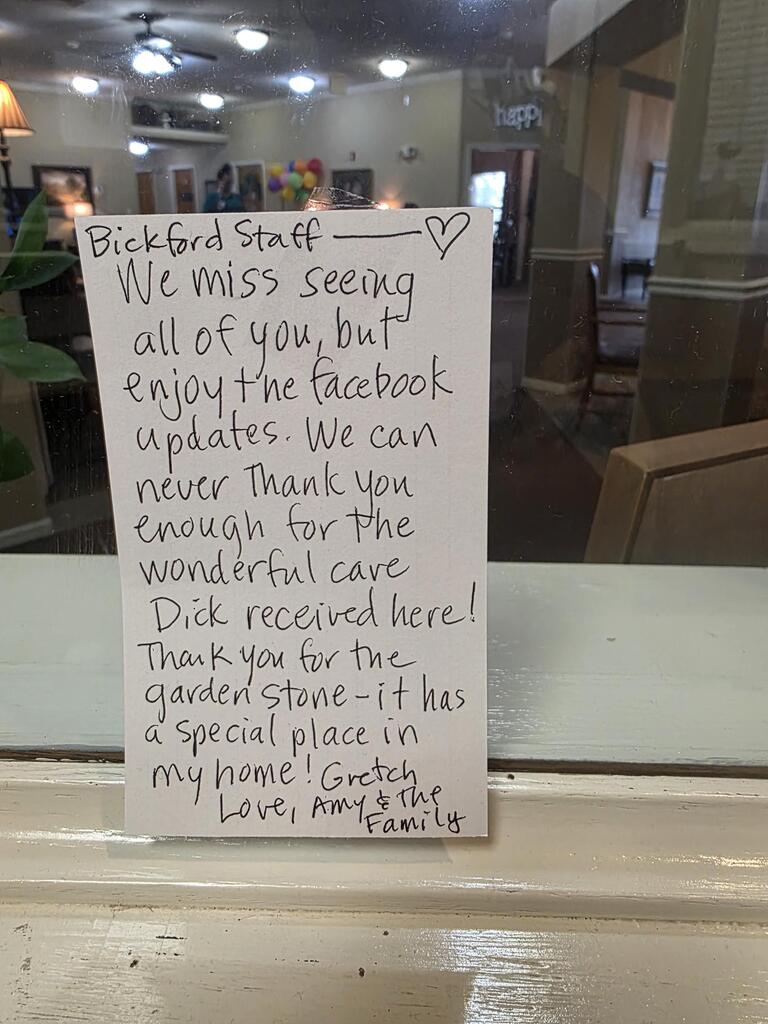 happy
Bickford Staff —— ♡
We miss seeing
all of you, but
enjoy the facebook
updates. We can
never Thank you
enough for the
wonderful care
Dick received here!
Thank you for the
garden stone - it has
a special place in
my home! Gretch
Love, Amy & The
Family